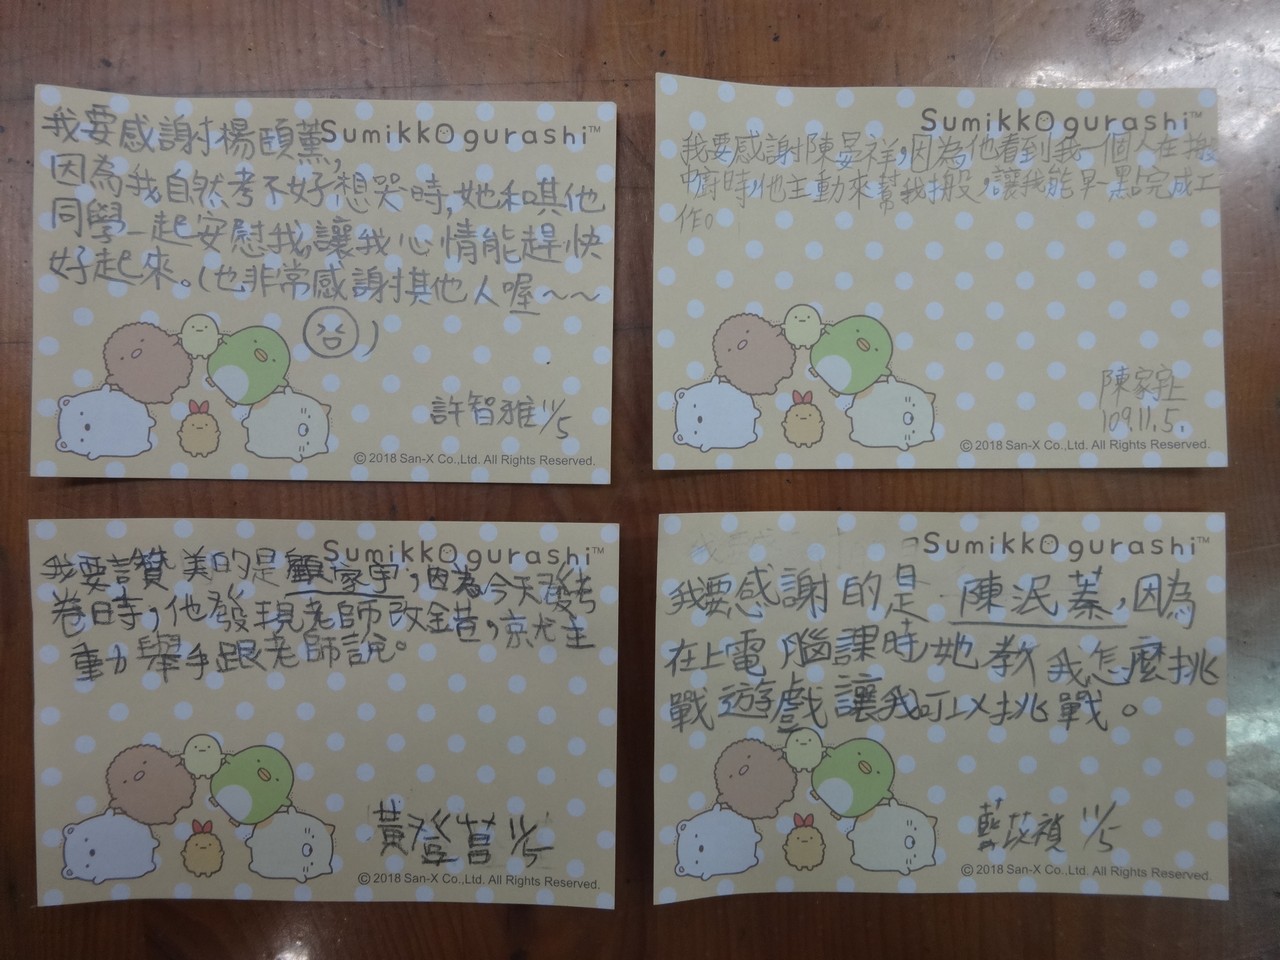 Sumikkogurashi™
我要感謝楊頤薰,
因為我自然考不好想哭時,她和其他
同學一起安慰我,讓我心情能趕快
好起來。(也非常感謝其他人喔~~
)
許智雅 11/5
© 2018 San-X Co.,Ltd. All Rights Reserved.
Sumikkogurashi™
我要感謝陳晏祥,因為他看到我一個人在搬
中廚時,他主動來幫我搬,讓我能早一點完成工
作。
陳家
109.11.5.
© 2018 San-X Co.,Ltd. All Rights Reserved.
Sumikkogurashi™
我要讚美的是顧家宇,因為今天發考
卷日時,他發現老師改錯,京尤主
動舉手跟老師說。
黃登 11/5
© 2018 San-X Co.,Ltd. All Rights Reserved.
Sumikkogurashi™
我要感謝的是陳泯蓁,因為
在上電腦課時她教我怎麼挑
戰遊戲讓我可以挑戰。
藍苡禎 11/5
© 2018 San-X Co.,Ltd. All Rights Reserved.